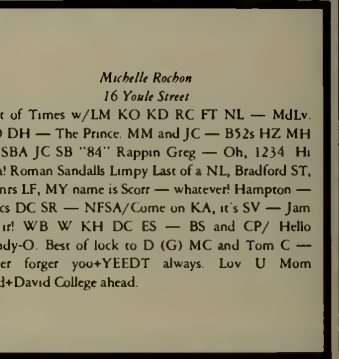 Michelle Rochon
16 Youle Street
t of Times w/LM KO KD RC FT NL — MdLv.
DH — The Prince. MM and JC — B52s HZ MH
SBA JC SB "84" Rappin Greg — Oh, 1234 Hi
! Roman Sandalls Limpy Last of a NL, Bradford ST,
nrs LF, MY name is Scorr — whatever! Hampton —
cs DC SR — NFSA/Come on KA, it's SV — Jam
ir! WB W KH DC ES — BS and CP/ Hello
ndy-O. Best of lock to D (G) MC and Tom C —
er forger you+YEEDT always. Lov U Mom
d+David College ahead.